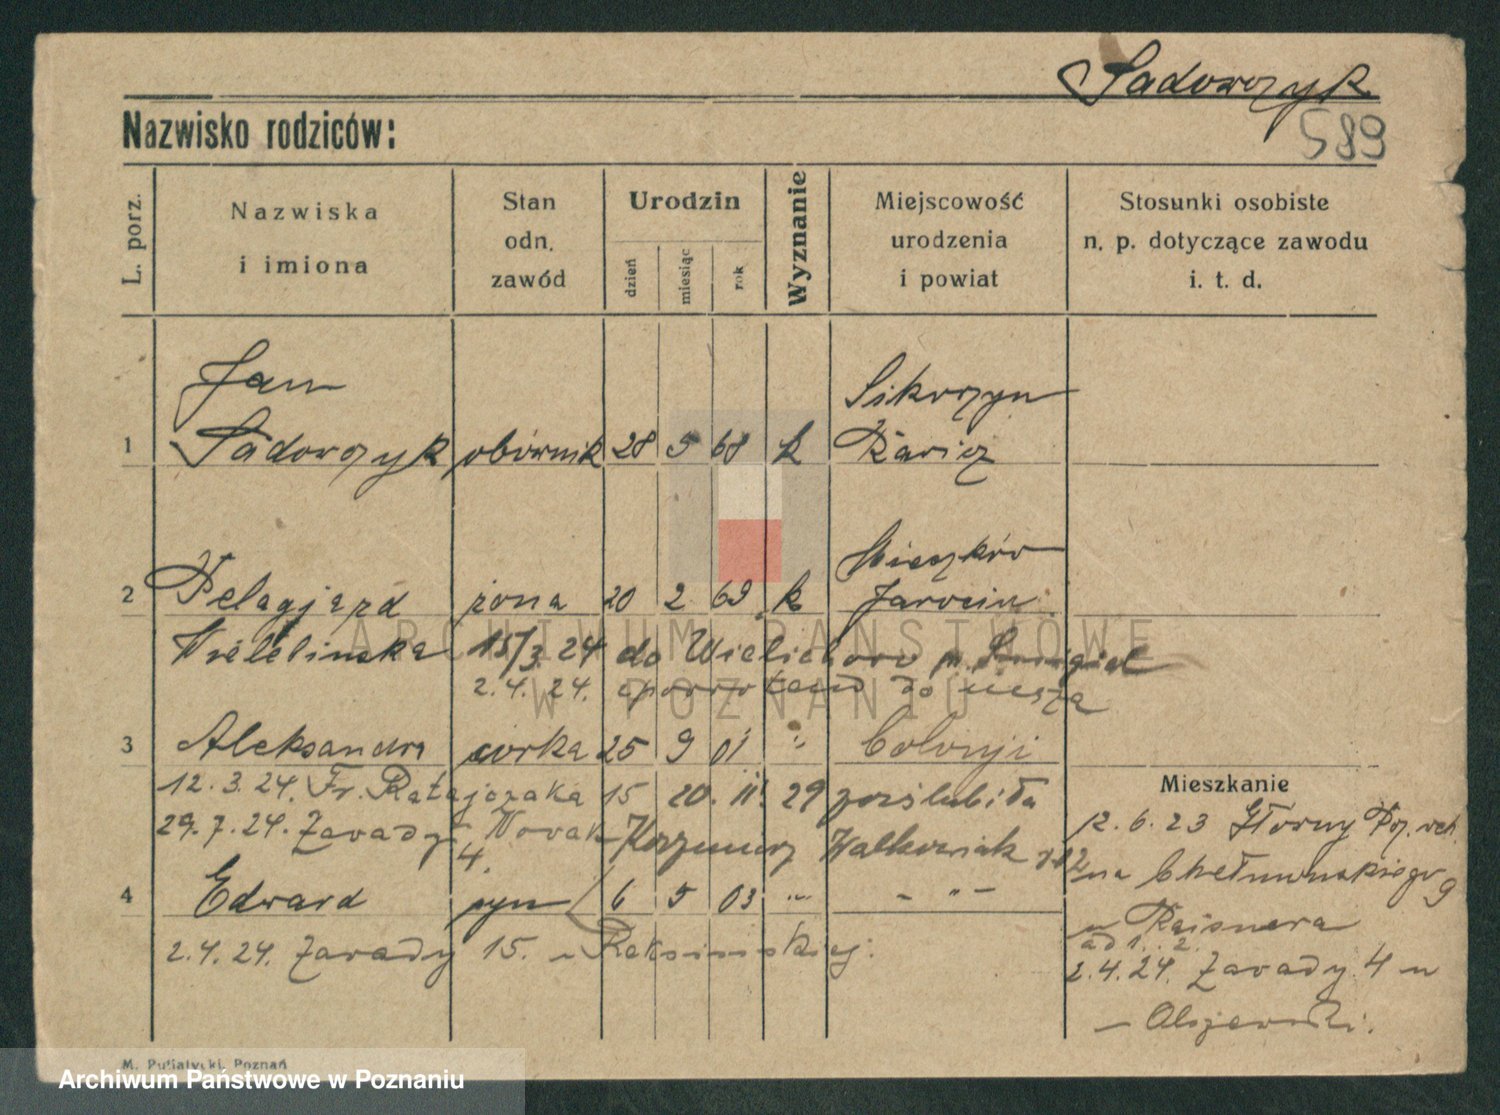 Sadowczyk
589
Nazwisko rodziców:
L. porz.
Nazwiska
i imiona
Stan
odn.
zawód
Urodzin
dzień
miesiąc
rok
Wyznanie
Miejscowość
urodzenia
i powiat
Stosunki osobiste
n. p. dotyczące zawodu
i. t. d.
Jan
Sikorzyn
1 Sadowczyk obórnik 28 5 68 k Rawicz
Mieszków
2 Pelagja żona 20 2 69 k Jarocin
15/3. 24 do Wielichowo p. Śmigiel
2. 4. 24. z powrotem do
3 Aleksandra córka 25 9 01 "
Mieszkanie
12. 3. 24. Fr. Ratajczaka 15 20. 11. 29 poślubiła
12. 6. 23 Główny
29. 7. 24. Zawady 4. Nowak Kazimierz Walkowiak
na 9
4 Edward syn 6 5 03 " - " -
u Reisnera
ad 1. 2.
2. 4. 24. Zawady 15. u
2. 4. 24. Zawady 4 u
Olszewski.
M. Putiatycki, Poznań
ARCHIWUM PAŃSTWOWE
W POZNANIU
Archiwum Państwowe w Poznaniu